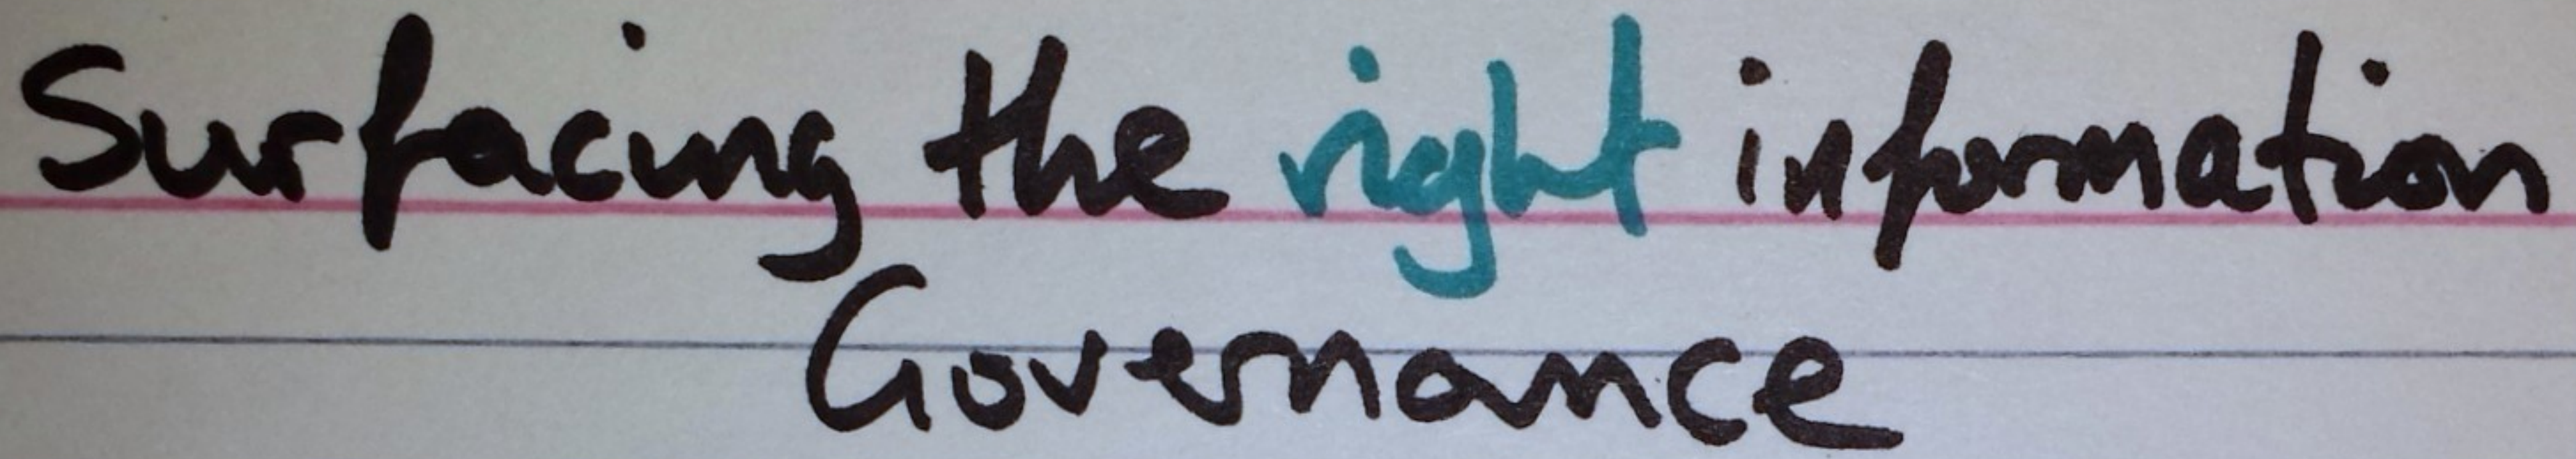 Surfacing the right information
Governance